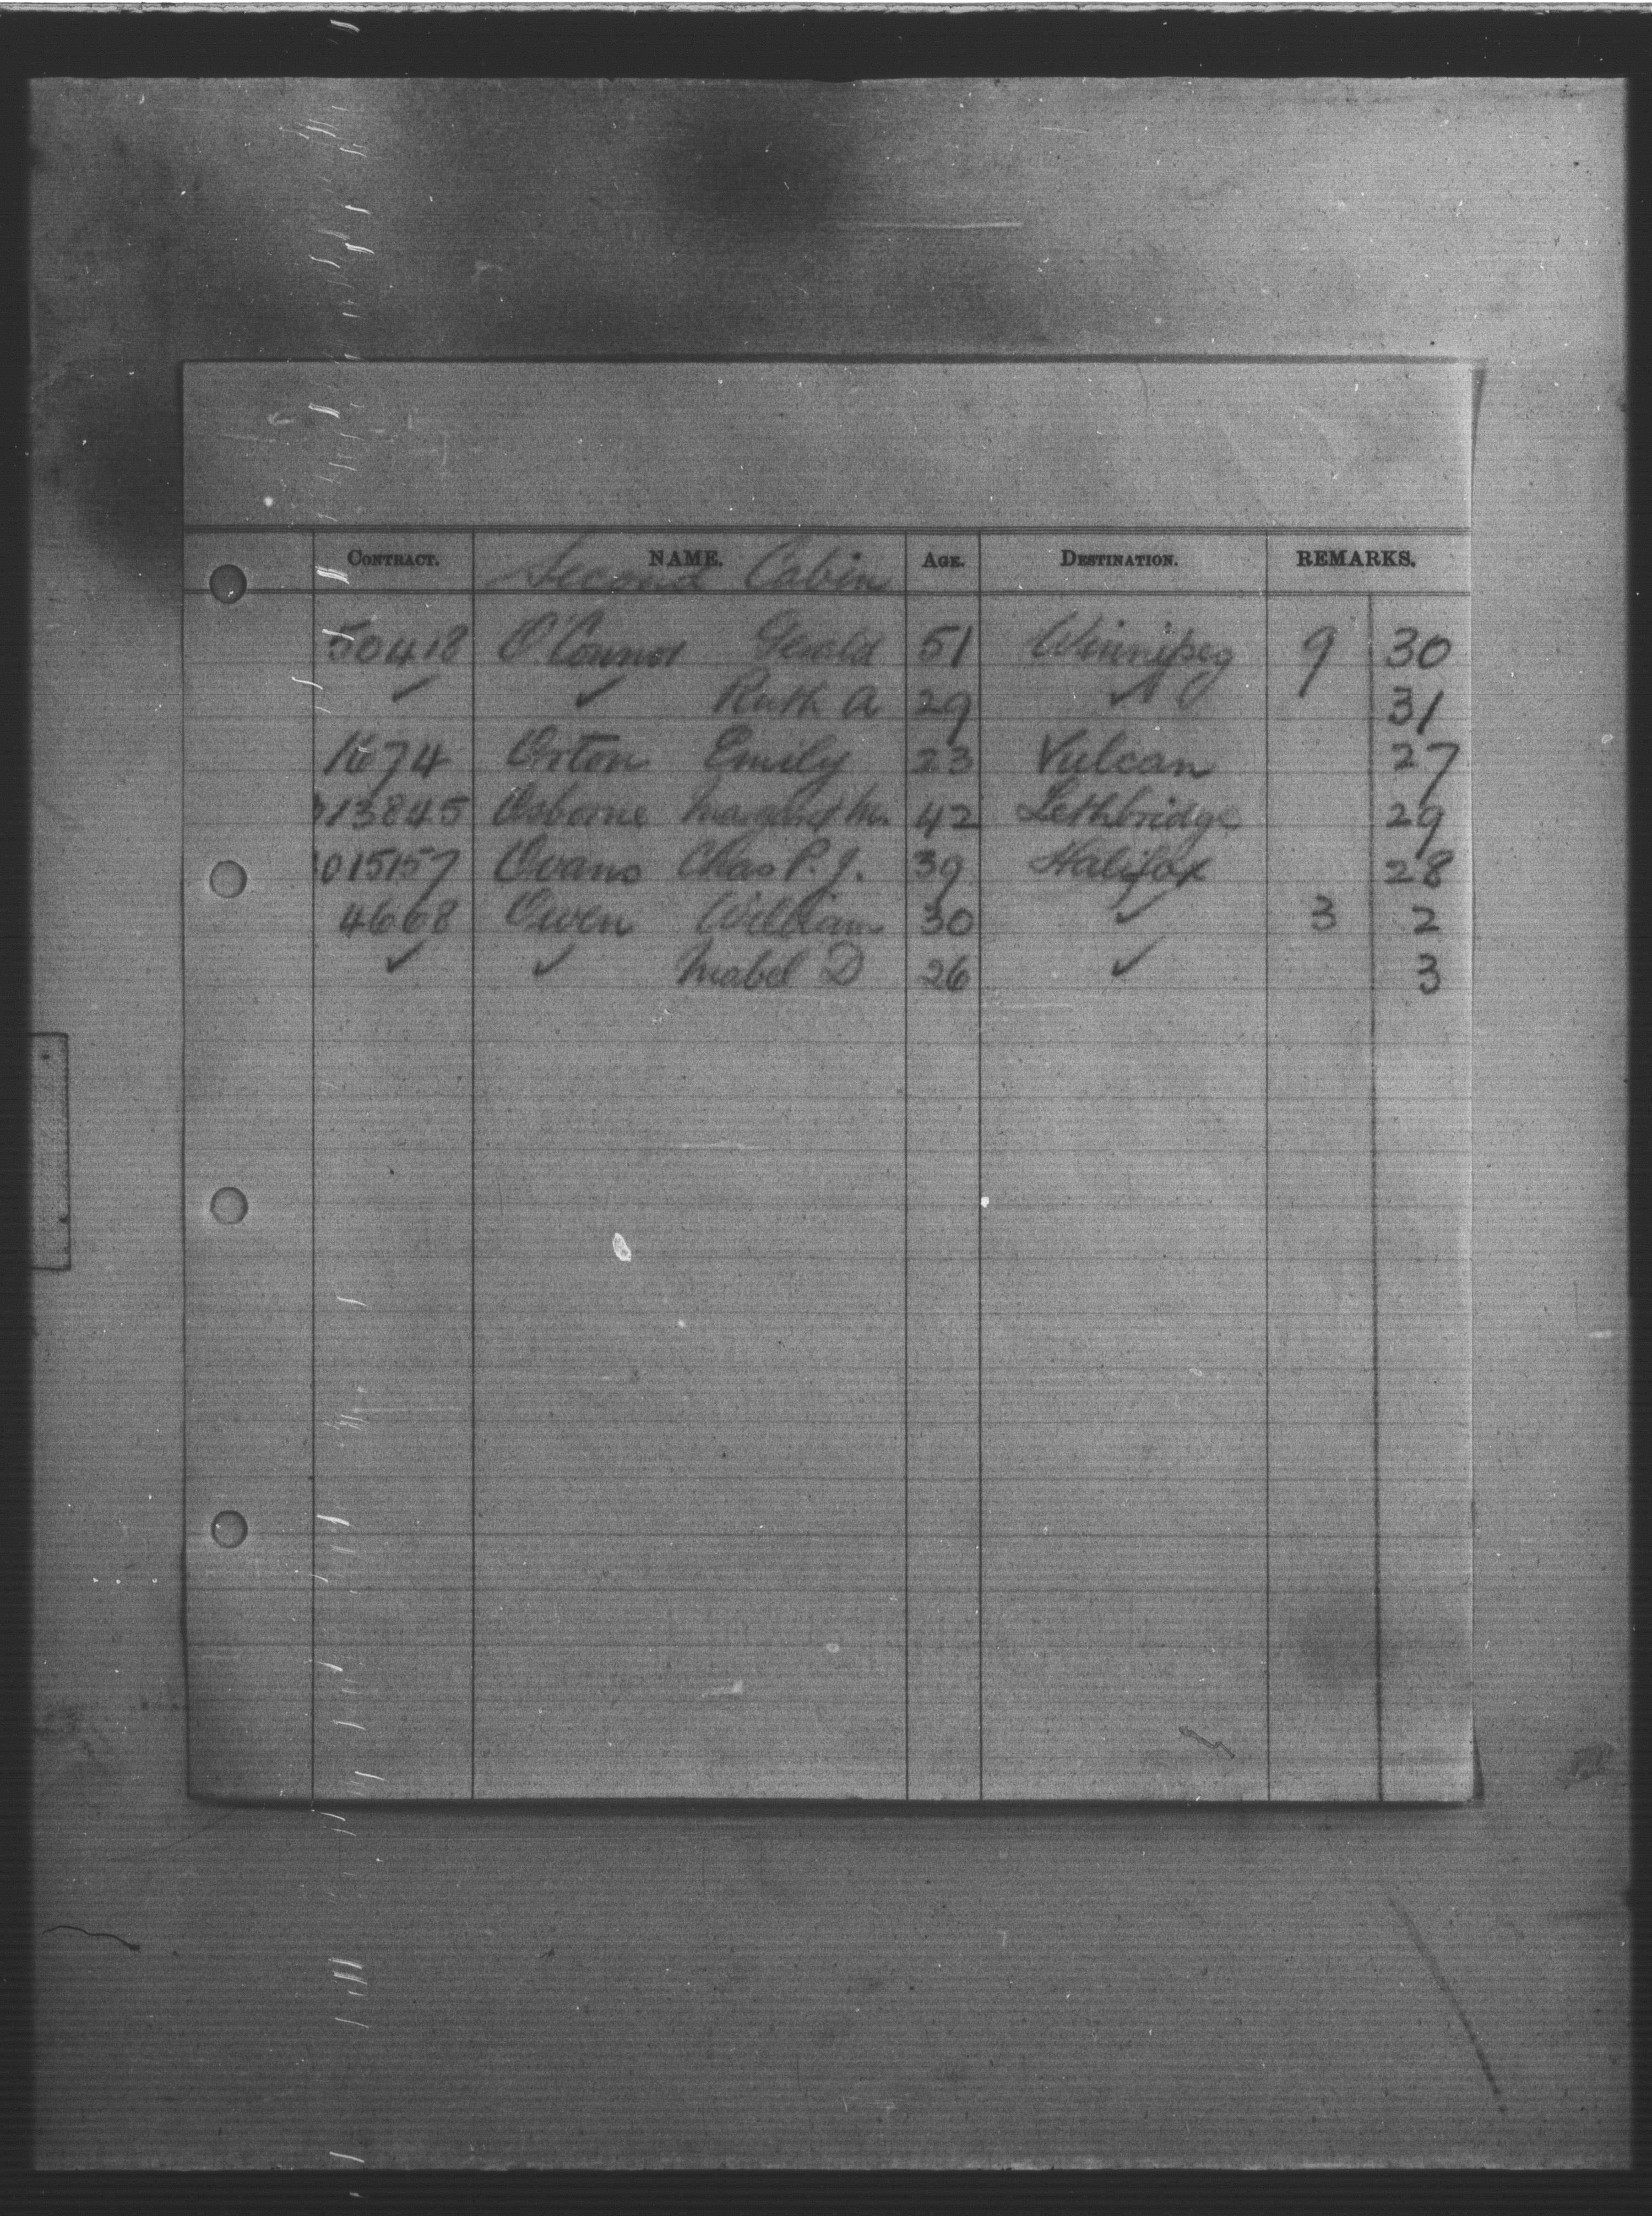 CONTRACT. NAME. AGE. DESTINATION. REMARKS.
Second Cabin
50418 O'Connor Gerald 51 Winnipeg 9 30
✓ ✓ Ruth A 29 ✓ 31
1674 Orton Emily 23 Vulcan 27
13845 Osborne Margaret M. 42 Lethbridge 29
015157 Ovans Chas P. J. 39 Halifax 28
4668 Owen William 30 ✓ 3 2
✓ ✓ Mabel D 26 ✓ 3